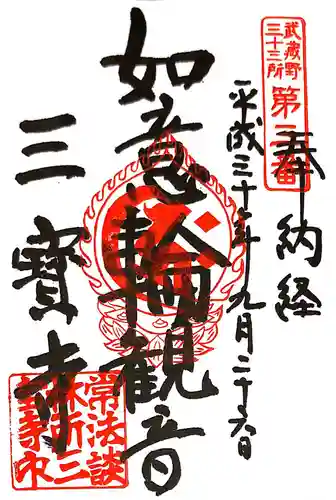 武蔵野
三十三所
第三番
奉納経
平成三十年九月二十六日
如意輪観音
三寳寺
常法談
林所三
寳寺印